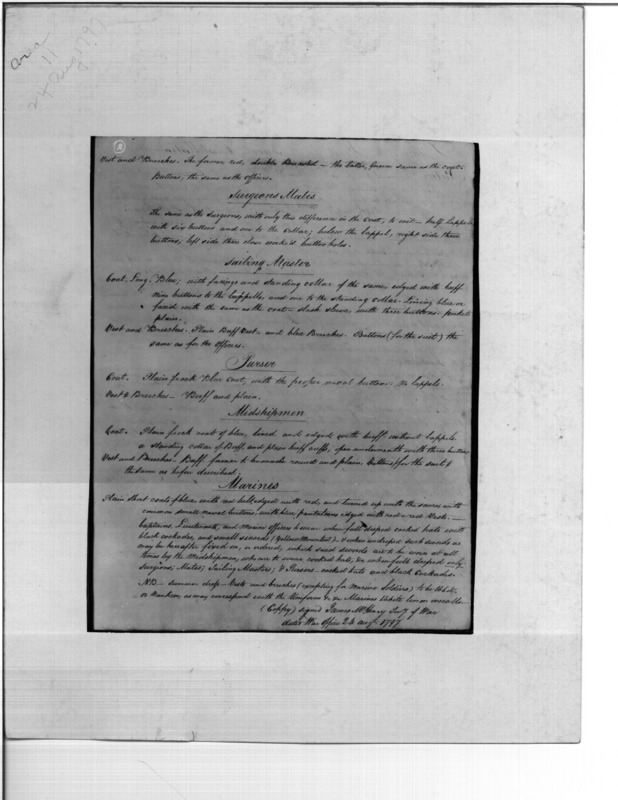 area
11
24 Aug 1797
2
Vest and Breeches. The former red, double breasted - the latter, green same as the coat -
Buttons, the same as the officers.
Surgeons Mates
The same as the Surgeons, with only this difference in the coat, to wit - half lappels
with six buttons and one to the collar; below the lappel, right side three
buttons, left side three close work'd button holes.
Sailing Master
Coat. Long, Blue; with facings and standing collar of the same edged with buff
nine buttons to the lappells, and one to the standing collar. Lining blue or
faced with the same as the coat - slash sleeve, with three buttons - pockets
plain.
Vest and Breeches. Plain Buff Vest - and blue Breeches. Buttons (for the suit) the
same as for the officers.
Purser
Coat. Plain frock blue coat, with the proper naval buttons. No lapels.
Vest & Breeches - Buff and plain.
Midshipmen
Coat. Plain frock coat of blue, lined and edged with buff without lappels
a standing collar of Buff, and plain buff cuffs, open underneath with three buttons.
Vest and Breeches - Buff, former to be made round and plain. Buttons for the suit
the same as before described.
Marines
Plain short coats of blue with red belt, edged with red, and turned up with the same, with
common small naval buttons, with blue pantaloons edged with red - red Vests. -
Captains, Lieutenants, and Marine officers to wear when full dressed cocked hats with
black cockades, and small swords (Yellow Mounted) & when undressed such swords as
may be hereafter fixed on, or ordered, which said swords are to be worn at all
times by the Midshipmen, who are to wear cocked hats, &c when full dressed only.
Surgeons, Mates; Sailing Masters; & Pursers - cocked hats and black cockades.
NB - summer dress Vests and breeches (excepting for Marine Soldiers) to be white
or Nankeen as may correspond with the Uniform &c Marines white linen overalls.
(Coppy) signed James McHenry Secty of War
dated War Office 24 augt. 1797